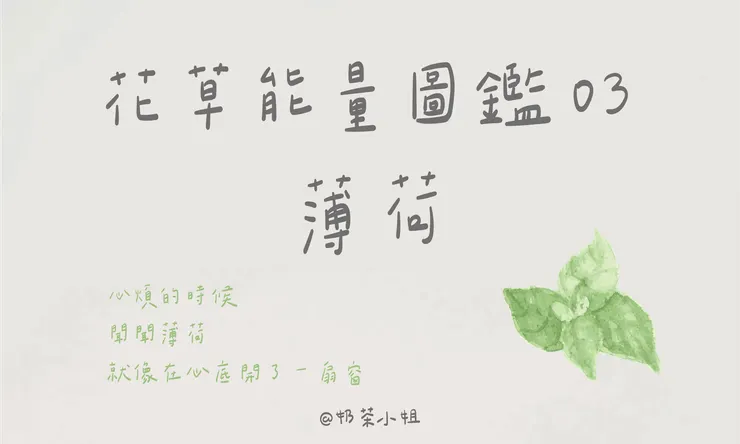 花草能量圖鑑03
薄荷
心煩的時候
聞聞薄荷
就像在心底開了一扇窗
@奶茶小姐